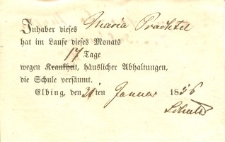 Inhaber dieses Maria
hat im Laufe dieses Monats
17 Tage
wegen Krankheit, häuslicher Abhaltungen,
die Schule versäumt.
Elbing, den Januar 1856